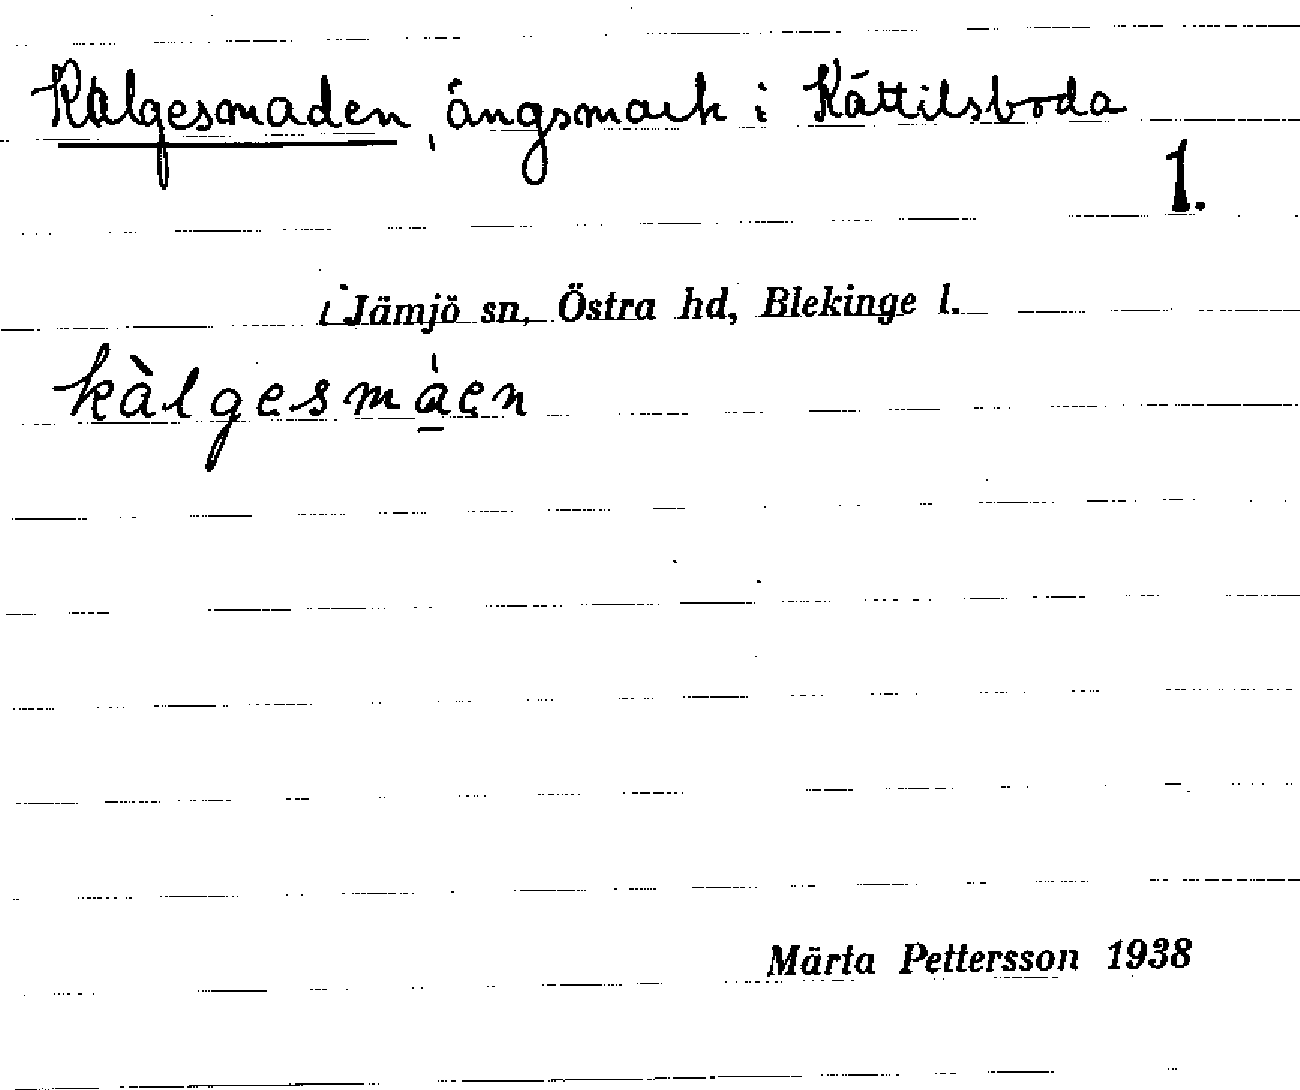 Kalgesmaden, ängsmark i Kättilsboda
1.
i Jämjö sn, Östra hd, Blekinge l.
kàlgesmáen
Märta Pettersson 1938